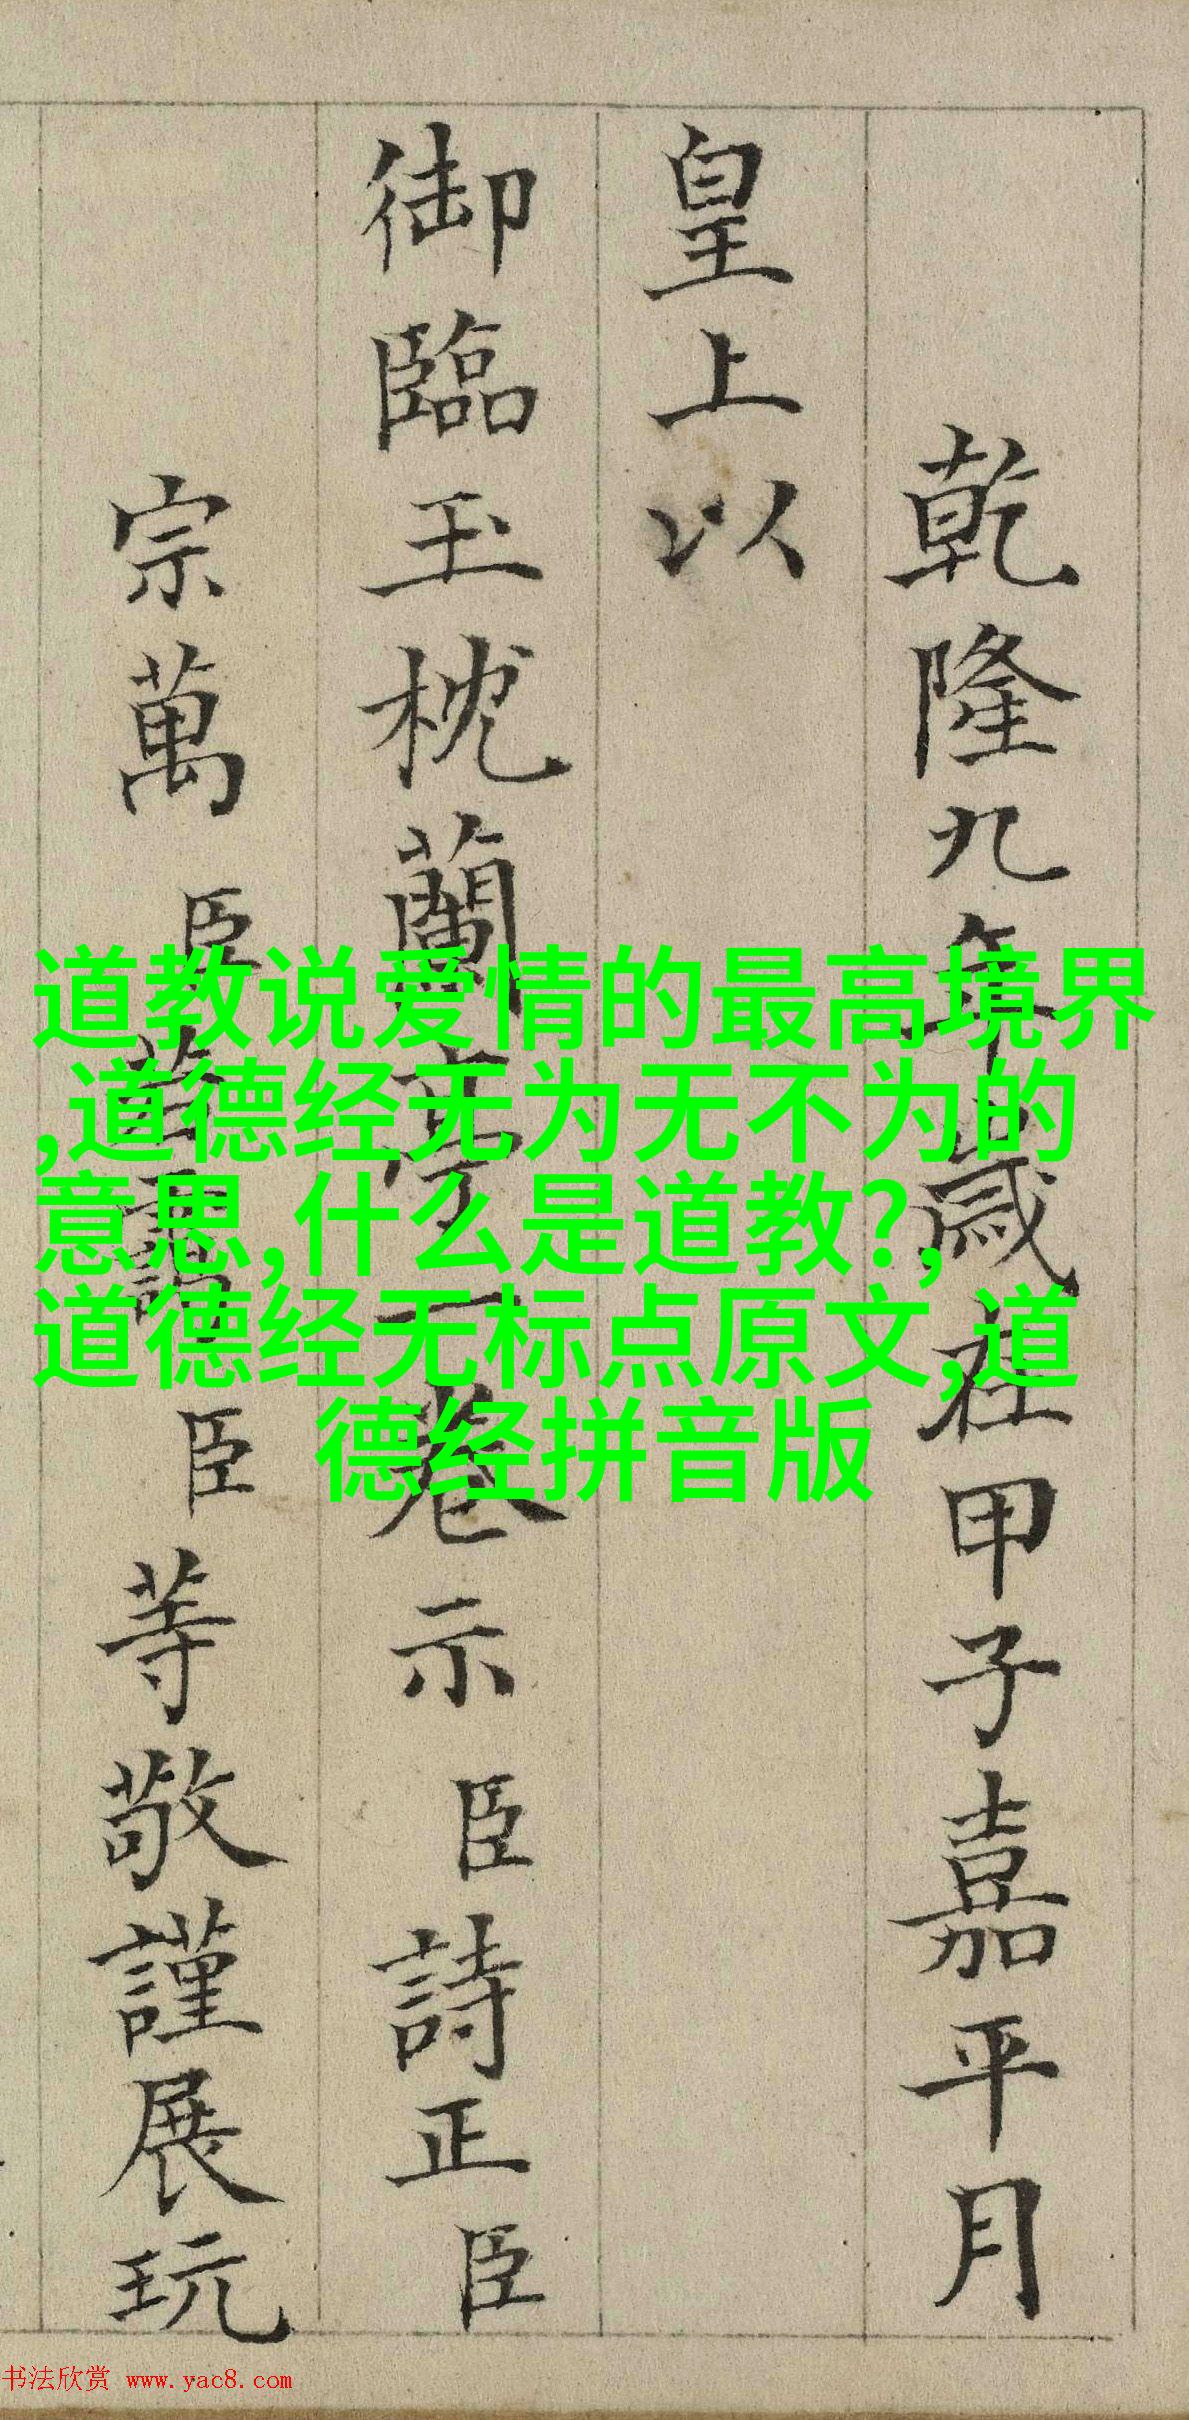 乾隆九年歲在甲子嘉平月
皇上以
御臨玉枕蘭亭一卷示臣詩正臣
宗萬臣若靄臣等敬謹展玩
道教说爱情的最高境界
,道德经无为无不为的
意思,什么是道教?,
道德经无标点原文,道
德经拼音版
书法欣赏 www.yac8.com